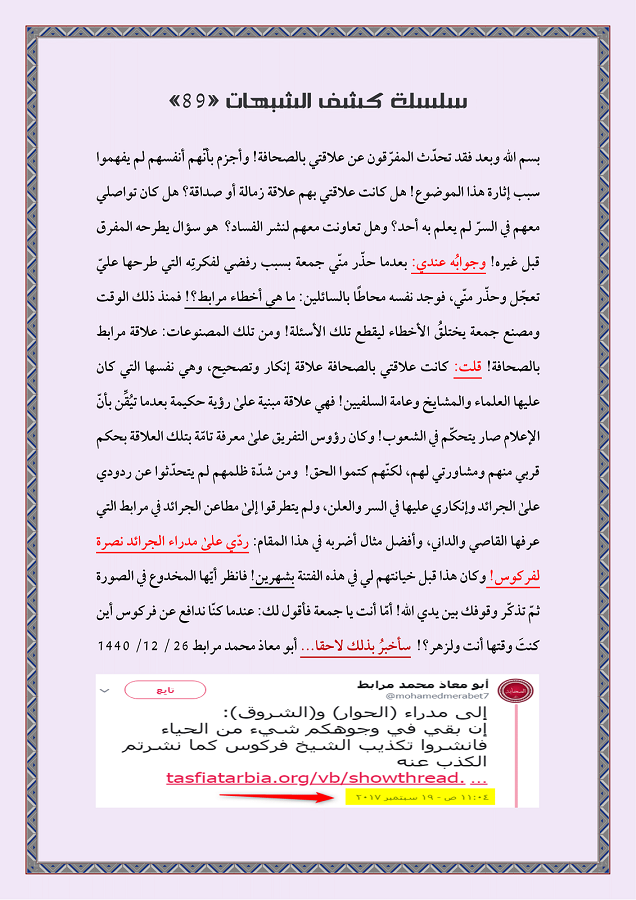 سلسلة كشف الشبهات «89»
بسم الله وبعد فقد تحدّث المفرّقون عن علاقتي بالصحافة! وأجزم بأنّهم أنفسهم لم يفهموا
سبب إثارة هذا الموضوع! هل كانت علاقتي بهم علاقة زمالة أو صداقة؟ هل كان تواصلي
معهم في السرّ لم يعلم به أحد؟ وهل تعاونت معهم لنشر الفساد؟ هو سؤال يطرحه المفرق
قبل غيره! وجوابُه عندي: بعدما حذّر منّي جمعة بسبب رفضي لفكرتِه التي طرحها عليّ
تعجّل وحذّر منّي، فوجد نفسه محاطًا بالسائلين: ما هي أخطاء مرابط؟! فمنذ ذلك الوقت
ومصنع جمعة يختلقُ الأخطاء ليقطع تلك الأسئلة! ومن تلك المصنوعات: علاقة مرابط
بالصحافة! قلت: كانت علاقتي بالصحافة علاقة إنكار وتصحيح، وهي نفسها التي كان
عليها العلماء والمشايخ وعامة السلفيين! فهي علاقة مبنية علىٰ رؤية حكيمة بعدما تيُقِّن بأنّ
الإعلام صار يتحكّم في الشعوب! وكان رؤوس التفريق علىٰ معرفة تامّة بتلك العلاقة بحكم
قربي منهم ومشاورتي لهم، لكنّهم كتموا الحق! ومن شدّة ظلمهم لم يتحدّثوا عن ردودي
علىٰ الجرائد وإنكاري عليها في السر والعلن، ولم يتطرقوا إلىٰ مطاعن الجرائد في مرابط التي
عرفها القاصي والداني، وأفضل مثال أضربه في هذا المقام: ردّي علىٰ مدراء الجرائد نصرة
لفركوس! وكان هذا قبل خيانتهم لي في هذه الفتنة بشهرين! فانظر أيّها المخدوع في الصورة
ثمّ تذكّر وقوفك بين يدي الله! أمّا أنت يا جمعة فأقول لك: عندما كنّا ندافع عن فركوس أين
كنتَ وقتها أنت ولزهر؟! سأخبرُ بذلك لاحقا... أبو معاذ محمد مرابط 26 / 12/ 1440
أبو معاذ محمد مرابط
تابع
@mohamedmerabet7
إلى مدراء (الحوار) و(الشروق):
إن بقي في وجوهكم شيء من الحياء
فانشروا تكذيب الشيخ فركوس كما نشرتم
الكذب عنه
tasfiatarbia.org/vb/showthread. ...
١١:٠٤ ص - ١٩ سبتمبر ٢٠١٧